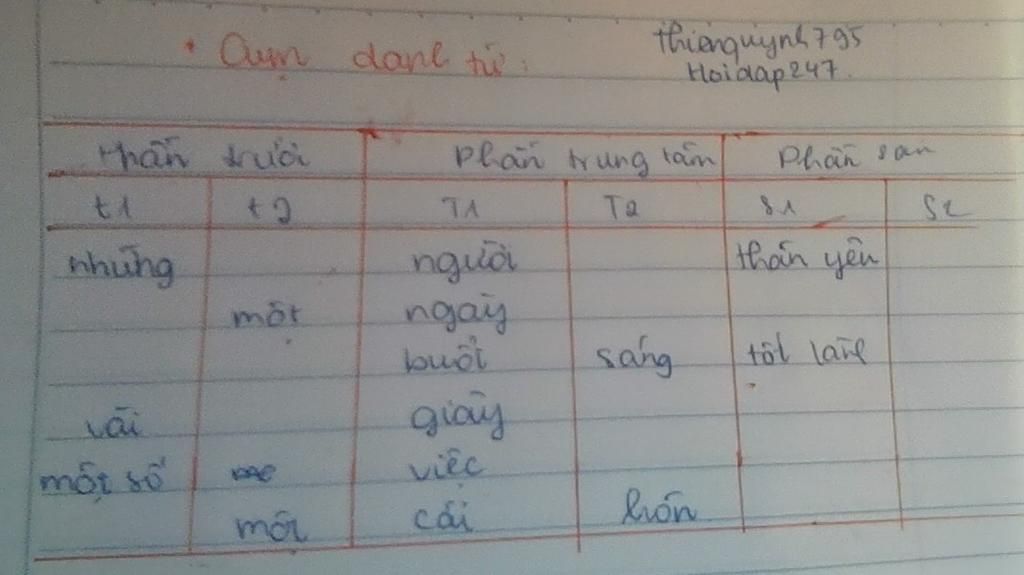 * Cụm danh từ:
thienquynh795
Hoidap247.
Phần trước Phần trung tâm Phần sau
t1 t2 T1 T2 S1 S2
những người thân yên
một ngày
buổi sáng tốt lành
vài giây
một số việc
một cái hôn